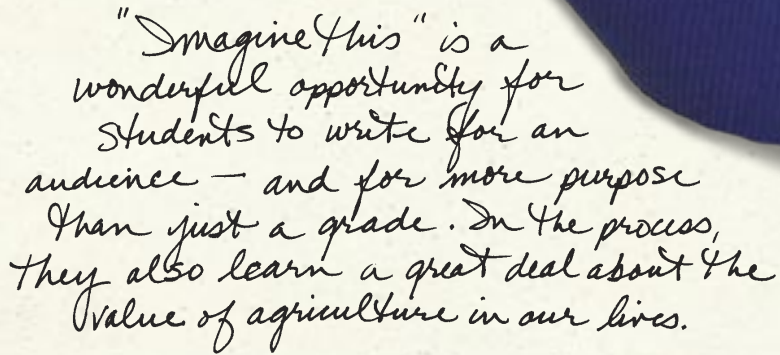 "Imagine this" is a
wonderful opportunity for
students to write for an
audience — and for more purpose
than just a grade. In the process,
they also learn a great deal about the
value of agriculture in our lives.